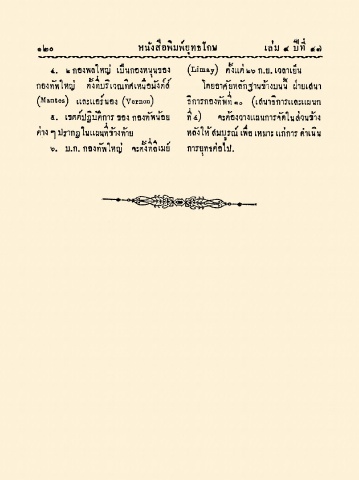 ๑๒๐ หนังสือพิมพ์ยุทธโกษ เล่ม ๔ ปีที่ ๔๗
๔. ๒ กองพลใหญ่ เป็นกองหนุนของ
กองทัพใหญ่ ตั้งที่บริเวณทิศเหนือมังต์ส์
(Mantes) และแอร์นอง (Vernon)
๕. เขตต์ปฏิบัติการ ของ กองทัพน้อย
ต่าง ๆ ปรากฏในแผนที่ข้างท้าย
๖. บ.ก. กองทัพใหญ่ จะตั้งที่ลิเมย์
(Limay) ตั้งแต่ ๒๖ ก.ย. เวลาเย็น
โดยอาศัยหลักฐานข้างบนนี้ ฝ่ายเสนา
ธิการกองทัพที่ ๑๐ (เสนาธิการและแผนก
ที่ ๔) จะต้องวางแผนการจัดในส่วนข้าง
หลังให้ สมบูรณ์ เพื่อ เหมาะ แก่การ ดำเนิน
การยุทธต่อไป.